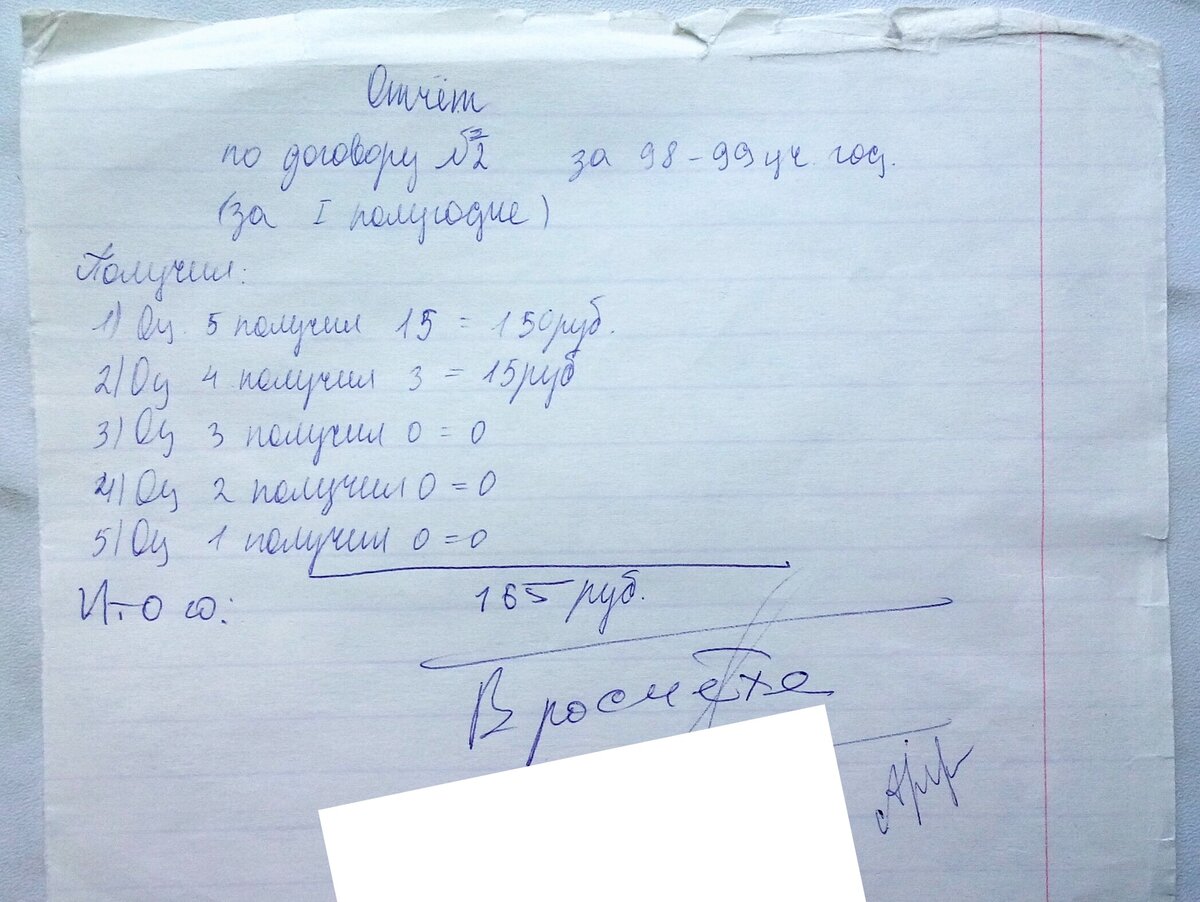 Отчёт
по договору №2 за 98-99 уч. год.
(за I полугодие)
Получил:
1) Оц. 5 получил 15 = 150 руб.
2) Оц 4 получил 3 = 15 руб
3) Оц 3 получил 0 = 0
4) Оц 2 получил 0 = 0
5) Оц 1 получил 0 = 0
Итого: 165 руб.
В